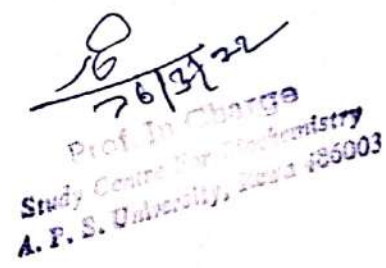 Prof. In Charge
Study Centre For Biochemistry
A. P. S. University, Rewa 486003